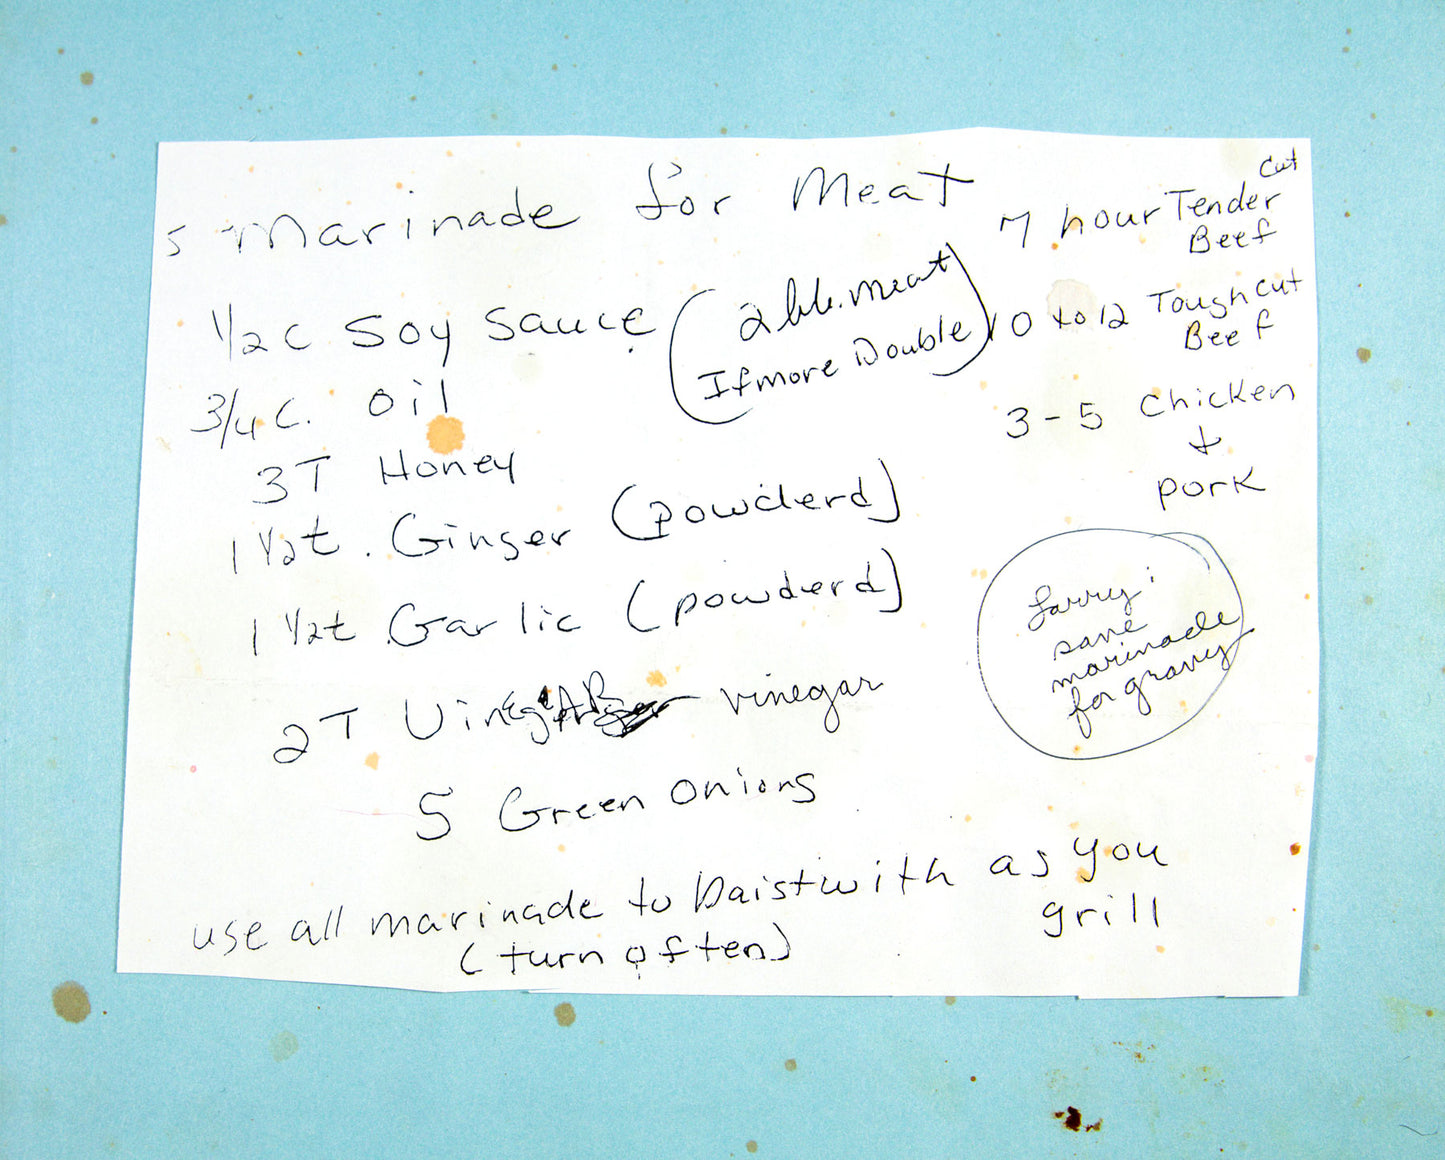 Marinade for Meat
1/2 C Soy Sauce
(2 lbs. meat
If more Double)
3/4 C. Oil
3T Honey
1 1/2t. Ginger (powderd)
1 1/2t Garlic (powderd)
2T VinegAR vinegar
5 Green Onions
use all marinade to baistwith as you
grill
(turn often)
7 hour Tender Cut
Beef
10 to 12 Tough Cut
Beef
3-5 Chicken
+
pork
Larry:
save
marinade
for gravy